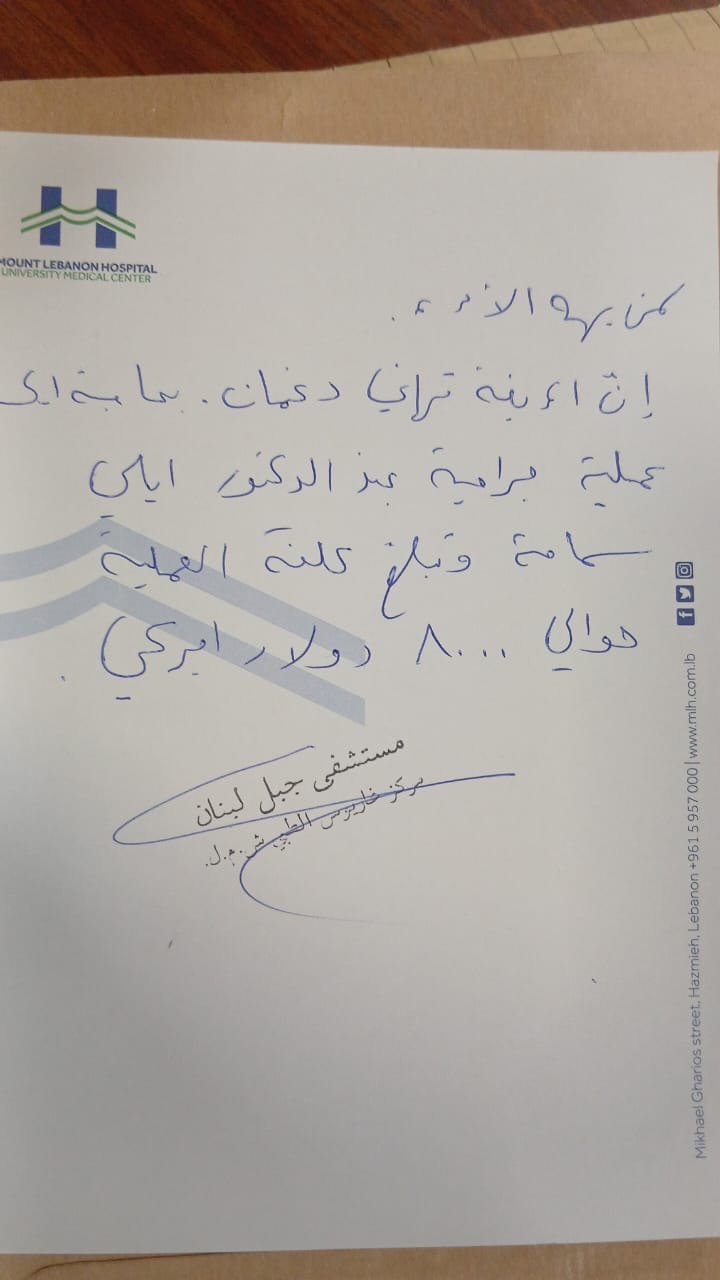 MOUNT LEBANON HOSPITAL
UNIVERSITY MEDICAL CENTER
لمن يهمه الأمر.
إنّ المريضة تراني دغمان. بحاجة الى
عملية جراحية عند الدكتور ايلي
سماحة وتبلغ كلفة العملية
حوالي ٨٠٠٠ دولار اميركي.
مستشفى جبل لبنان
مركز غاريوس الطبي ش.م.ل.
Mikhael Gharios street, Hazmieh, Lebanon +961 5 957 000 | www.mlh.com.lb